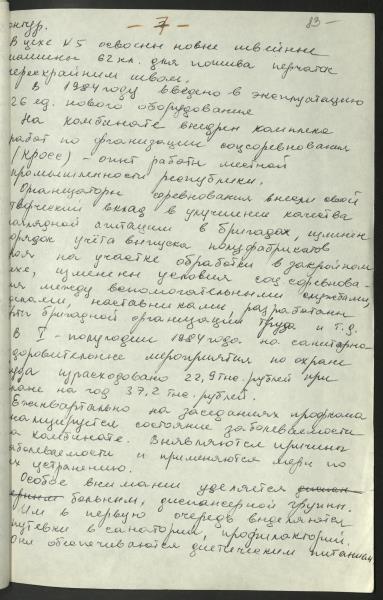 - 7 -
83-
онтур.
В цехе №5 освоены новые швейные
машины 62 кл. для пошива перчаток
перекрайним швом.
В 1984 году введено в эксплуатацию
26 ед. нового оборудования
На комбинате внедрен комплекс
работ по организации соцсоревнования
(КРОСС) - опыт работы местной
промышленности республики.
Организаторы соревнования внесли свой
творческий вклад в улучшение качества
наглядной агитации в бригадах, изменен
порядок учёта выпуска полуфабрикатов
кроя на участке обработки в закройном
цехе, изменены условия соцсоревнова-
ия между вспомогательными службами,
цехами, наставниками, разработаны
бригадной организации труда и т.д.
В I - полугодии 1984 года на санитарно-
здоровительные мероприятия по охране
уда израсходовано 22,9 тыс. рублей при
лане на год 37,2 тыс. рублей.
Ежеквартально на заседаниях профкома
анализируется состояние заболеваемости
а комбинате. Выявляются причины
аболеваемости и применяются меры по
их устранению.
Особое внимание уделяется
больным, диспансерной группы.
Им в первую очередь выделяются
путевки в санатории, профилакторий.
Они обеспечиваются диетическим питанием